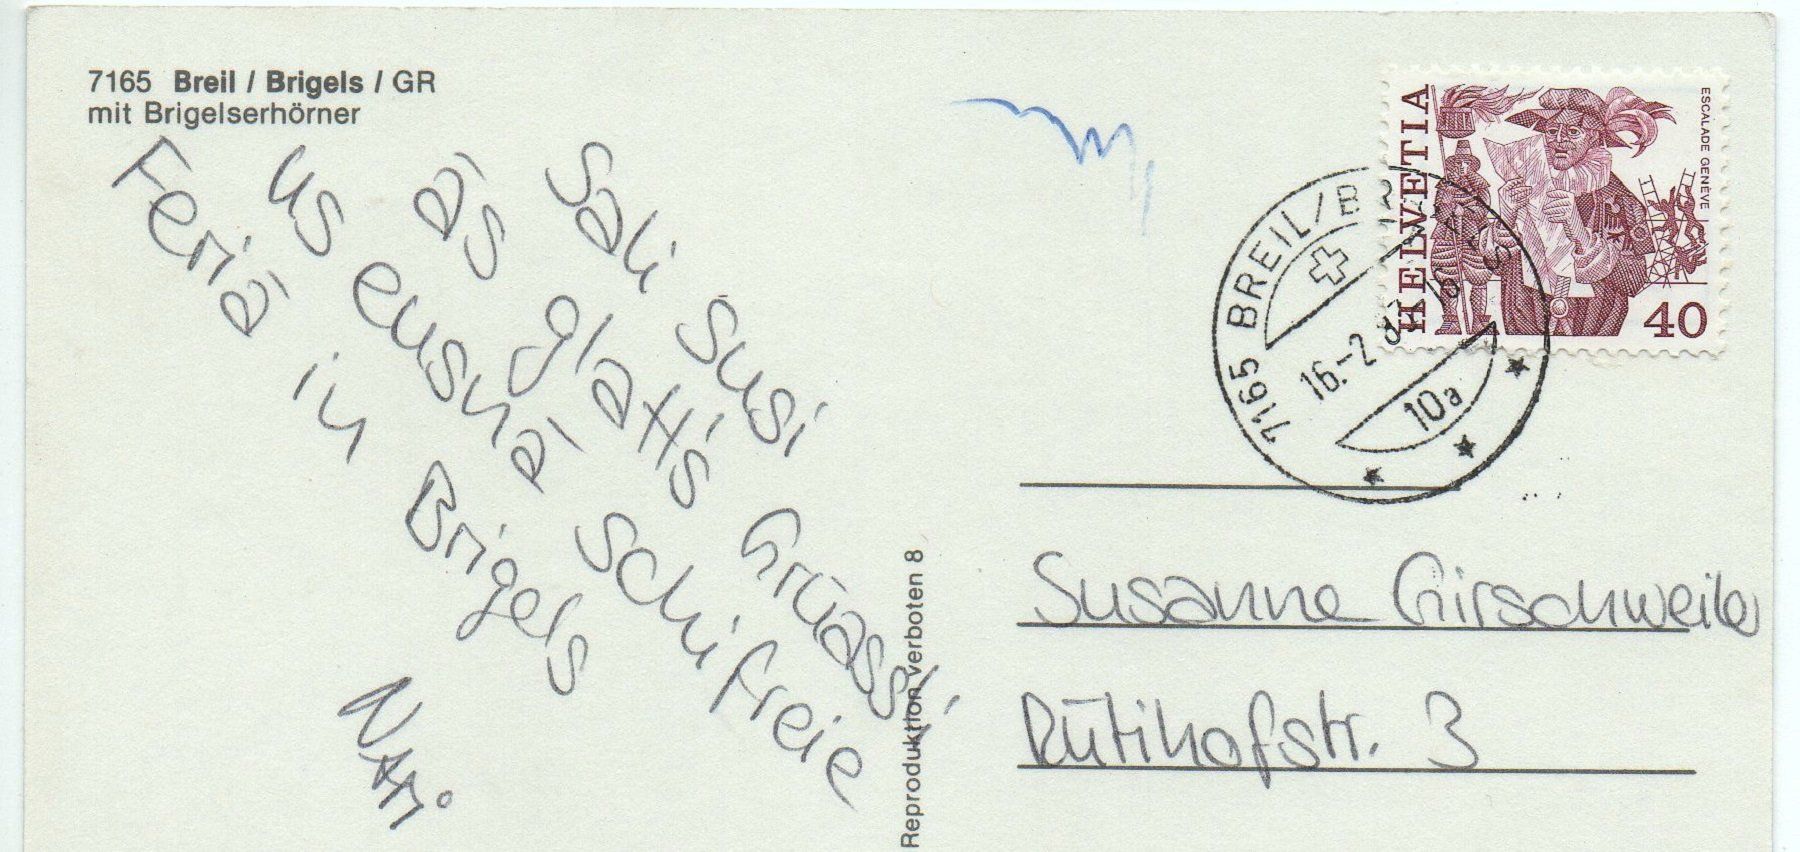 7165 Breil / Brigels / GR
mit Brigelserhörner
Sali Susi
äs glatts Grüassi
us eusnä schifreie
Feriä in Brigels
Nati
Reproduktion verboten 8
HELVETIA
ESCALADE GENÈVE
40
7165 BREIL/BRIGELS
16.-2.
10a
Susanne Girschweiler
Rütihofstr. 3